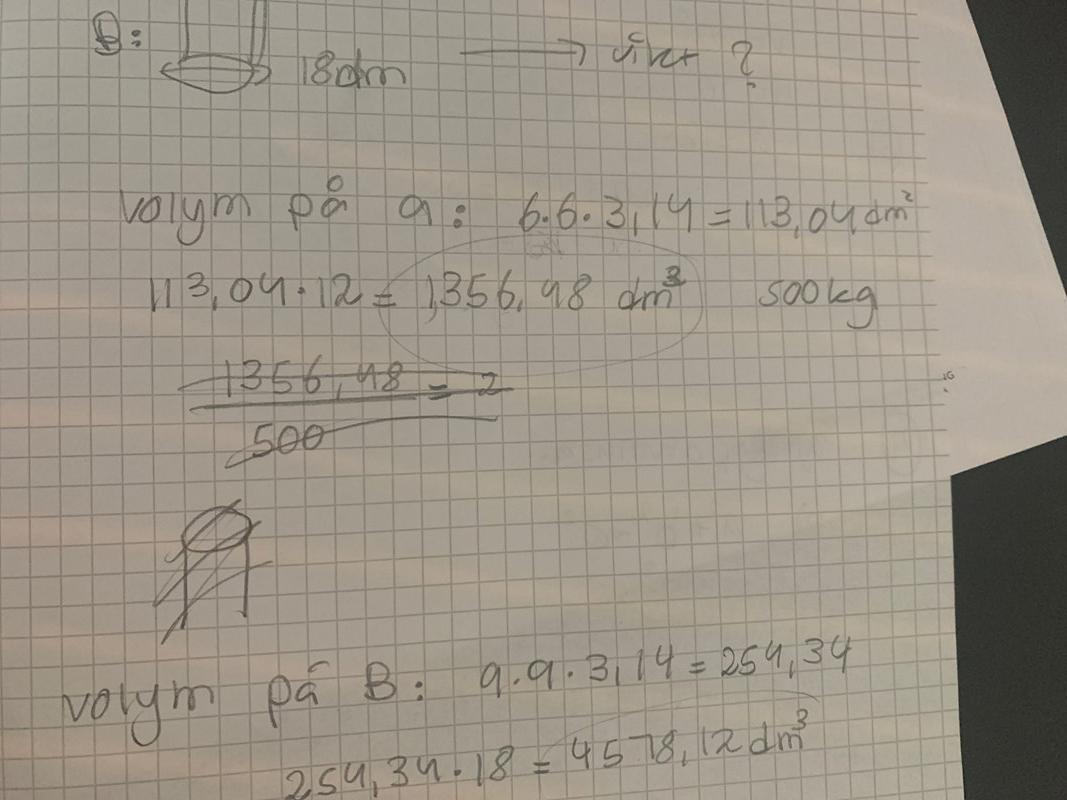 B: 18dm → vikt ?
volym på a: 6·6·3,14 = 113,04 dm²
113,04·12 = 1356,48 dm³ 500kg
1356,48 = 2
500
volym på B: 9·9·3,14 = 254,34
254,34·18 = 4578,12 dm³